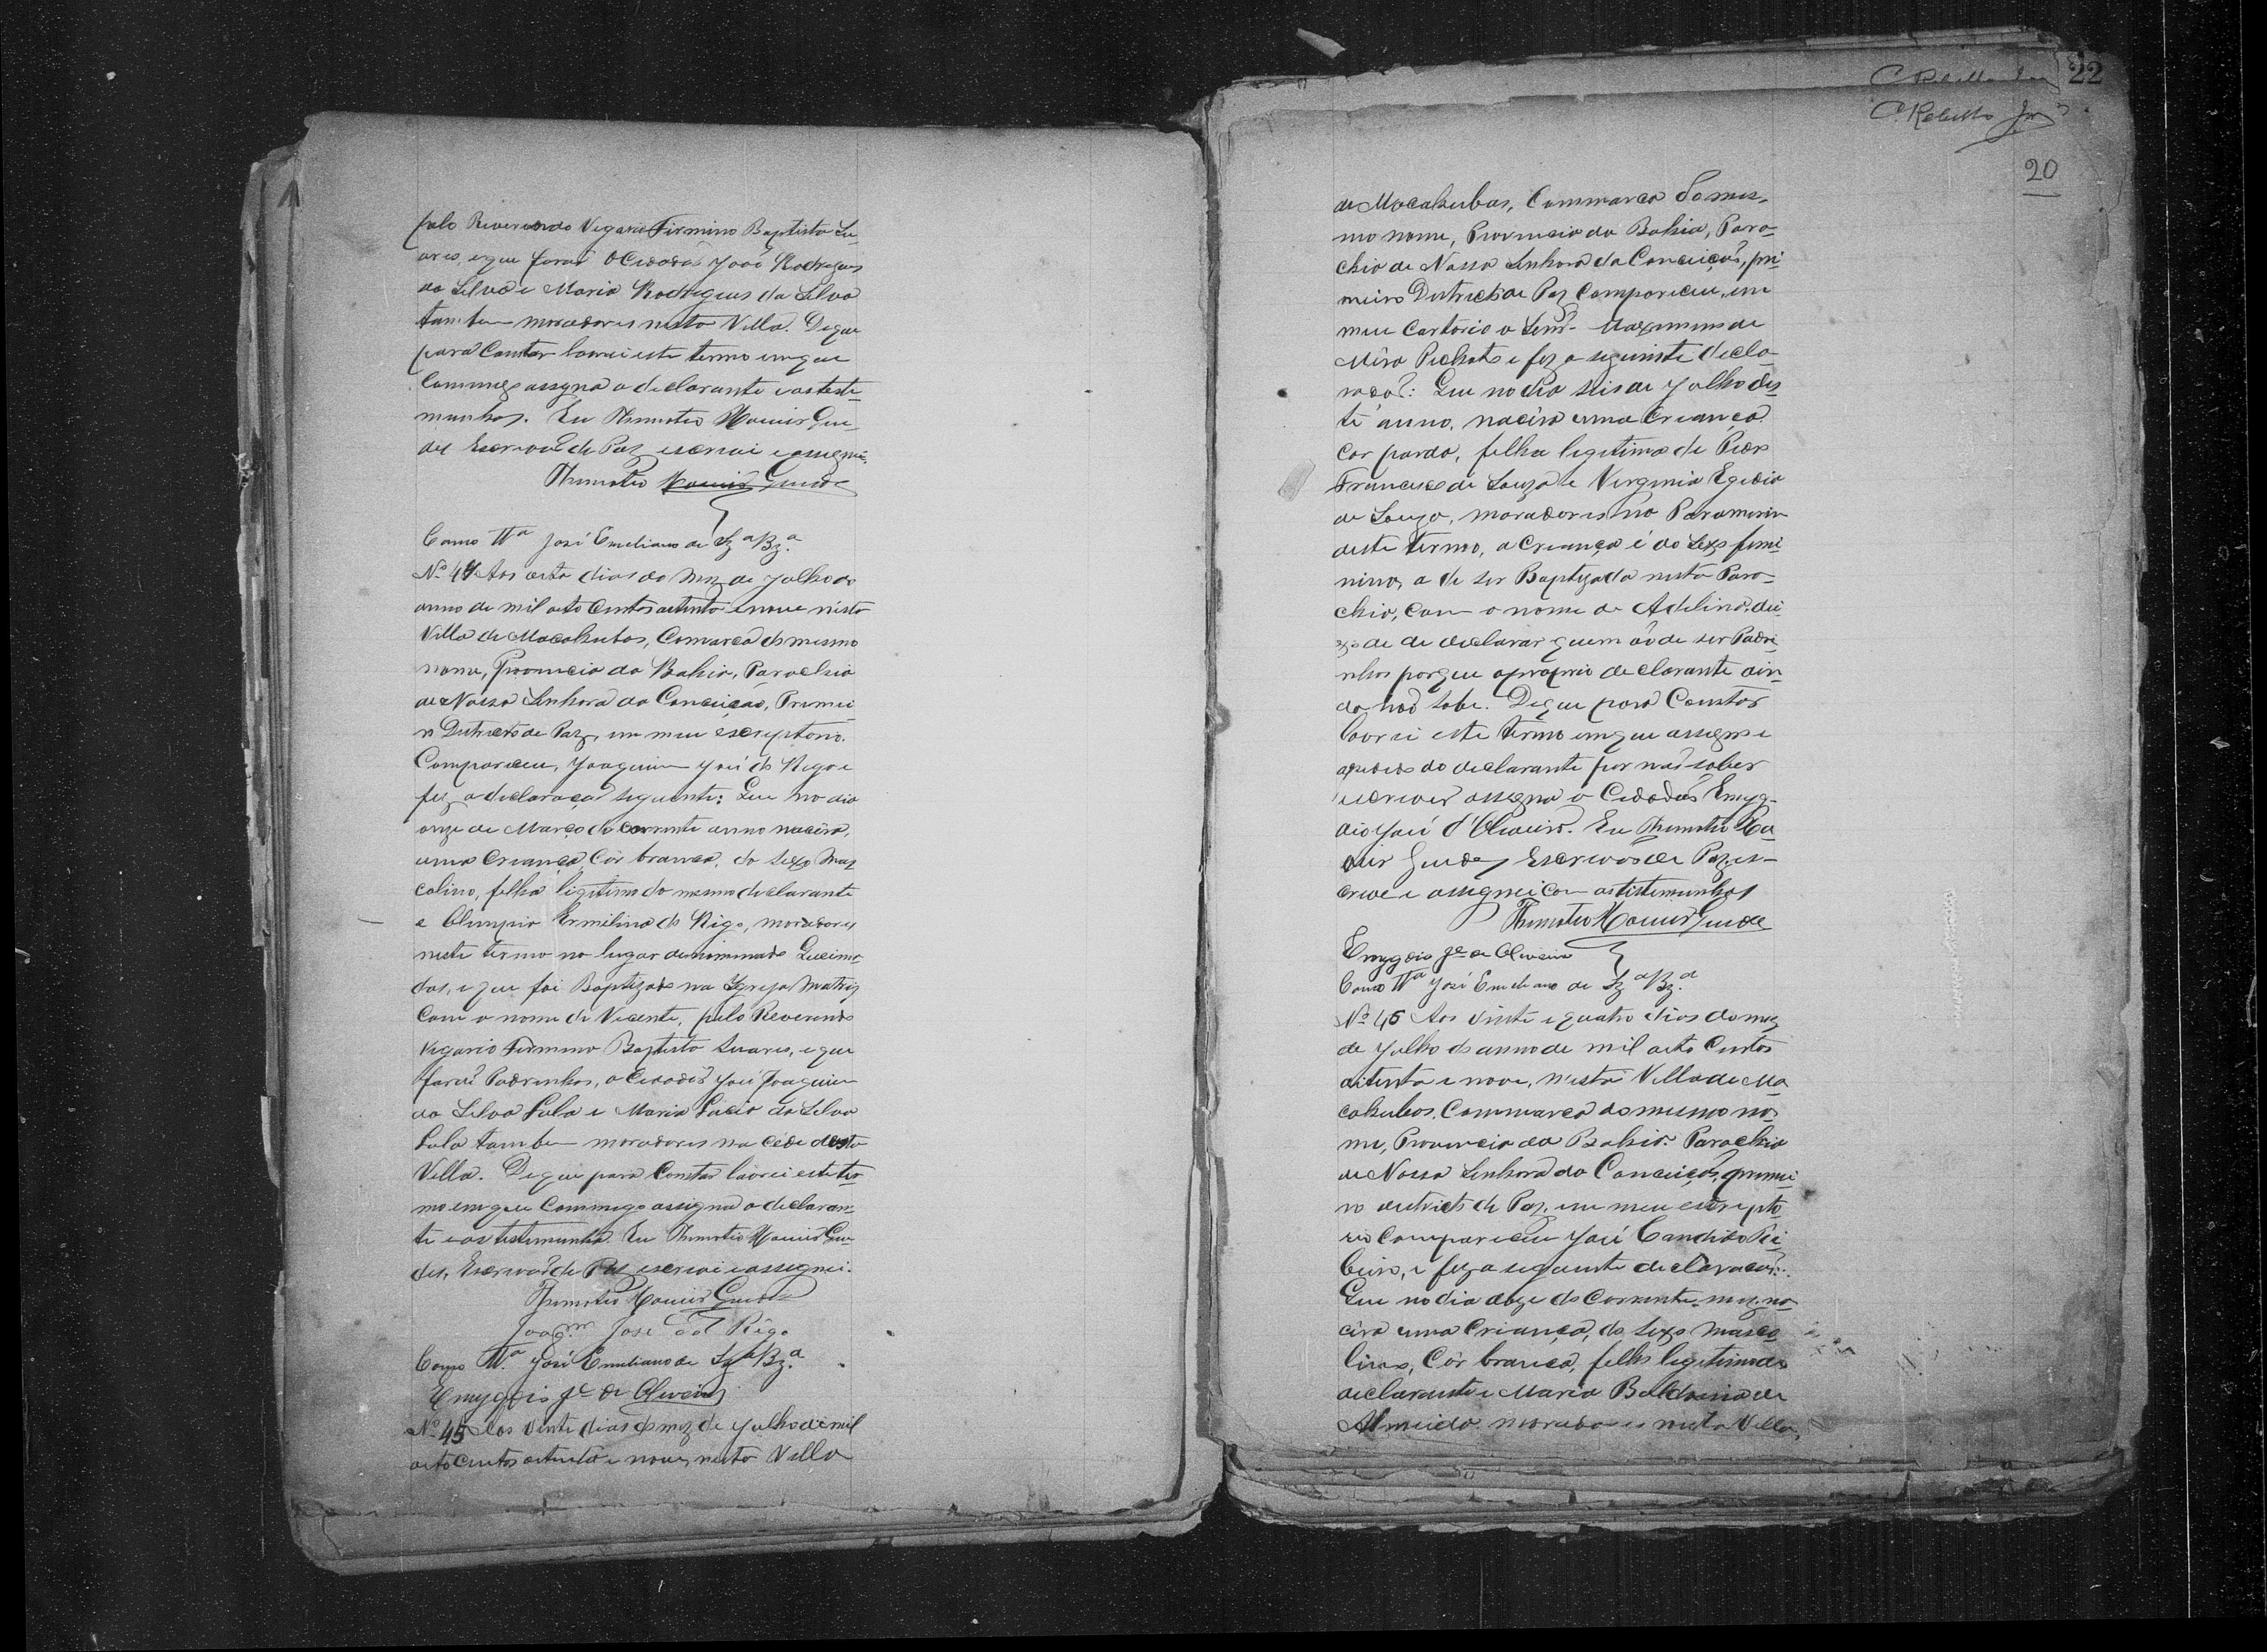 pelo Reverendo Vigario Firmino Baptista Su-
ares, e que forão O Cidadão João Rodrigues
da Silva e Maria Rodrigues da Silva
tambem moradores nesta Villa. De que
para Constar lavrei este termo em que
Commigo assigna o declarante e as teste-
munhas. Eu Themotio Xavier Gue-
des Escrivão de Paz escrevi e assignei.
Themotio Xavier Guedes
Como Ta José Emiliano de Sza Bza.
No 44 Aos oito dias do Mez de Julho do
anno de mil oito Centos oitenta e nove nésta
Villa de Macahubas, Comarca do mesmo
nome, Provincia da Bahia, Parochia
de Nossa Senhora da Conceição, Primei-
ro Districto de Paz, em meu escriptorio.
Compareceu, Joaquim José do Rego e
fez a declaração seguinte: Que no dia
onze de Março do corrente anno nacêra,
uma Criança Côr branca, do sexo Mas
colino, filha ligitima do mesmo declarante
e Olimpia Ermilina do Rigo, moradores
neste termo no lugar denominado Queima-
das, e que foi Baptizado na Igreja Matriz
Com o nome de Vicente, pelo Reverendo
Vigario Firmino Baptista Suares, e que
forão Padrinhos, o Cidadão José Joaquim
da Silva Lula e Maria Lucia da Silva
Lula tambem moradores na Céde desta
Villa. De que para Constar lavrei este ter
mo em que Commigo assigna o declaran-
te e as testemunha. Eu Themotio Xavier Gue-
des, Escrivão de Paz escrevi e assignei.
Themotio Xavier Guedes
Joaqm José do Rêgo
Como Ta. José Emiliano de Sza Bza.
Emygdio Je de Oliveira
No 45 Aos vinte dias do mez de Julho de mil
oito Centos oitenta e nove, nesta Villa
22
C Rebello Jor
C Rebello Jor
20
de Macahubas, Commarca do mes-
mo nome, Provincia da Bahia, Paro-
chia de Nossa Senhora da Conceição, pri-
meiro Districto de Paz Compareceu, em
meu Cartório o Senr. Maximino de
e fez a seguinte decla-
ração: Que no dia seis de Julho des-
te anno, nacêra uma Criança
Cor parda, filha legitima de
Francisco de Souza e Virginia Egidia
de Souza, moradores no Paramirim
deste termo, a Criança é do Sexo femi-
nino, a de ser Baptizada nesta Paro-
chia, Com o nome de Adelina, dei-
xo de declarar quem ão de ser Padri-
nhos porque o proprio declarante ain-
da não sabe. De que para Constar
lavrei este termo em que assigna e
a pedido do declarante por não saber
escrever assigna o Cidadão Emyg-
dio José d'Oliveira. Eu Themotio Xa
vier Guedes Escrivão de Paz es-
crevi e assignei Com as testemunhas
Themotio Xavier Guedes
Emygdio Je de Oliveira
Como Ta José Emiliano de Sza Bza.
No 46 Aos vinte e quatro dias do mez
de Julho do anno de mil oito Centos
oitenta e nove, n'esta Villa de Ma
cahubas, Commarca do mesmo no-
me, Provincia da Bahia. Parochia
de Nossa Senhora da Conceição, primei
ro districto de Paz, em meu escripto
rio Compareceu José Candido Ri
beiro, e fez a seguinte declaração:
Que no dia doze do Corrente mez, na-
cêra uma Criança, do Sexo masco
lino, Côr branca, filho legitimo do
declarante e Maria Balduina de
Almeida moradores nesta Villa,